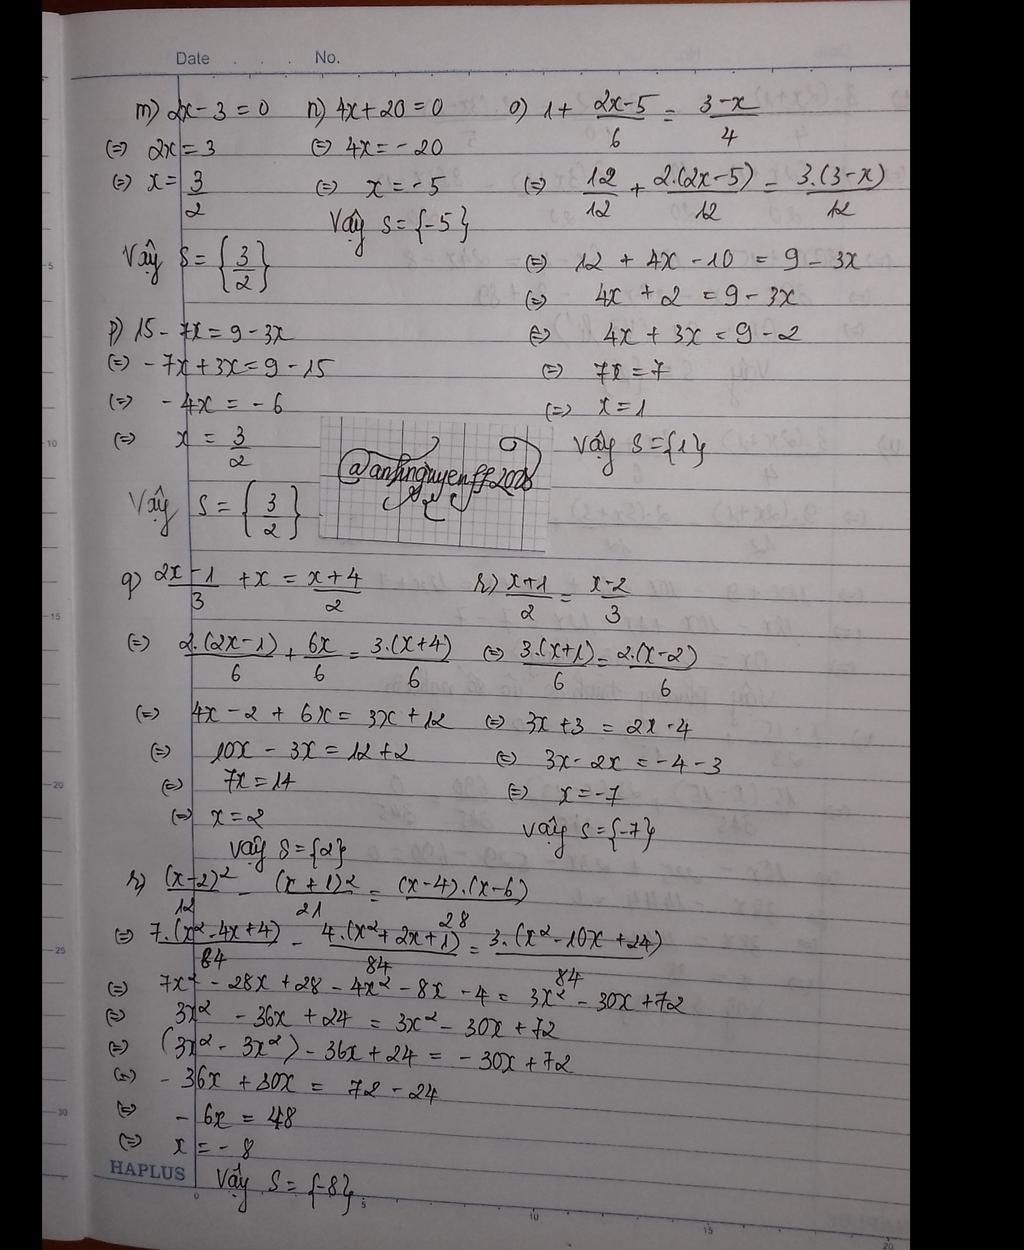 Date . . . No.
m) 2x - 3 = 0
(=) 2x = 3
(=) x = 3/2
Vậy S = {3/2}
n) 4x + 20 = 0
(=) 4x = - 20
(=) x = - 5
Vậy S = {-5}
o) 1 + (2x-5)/6 = (3-x)/4
(=) 12/12 + 2.(2x-5)/12 = 3.(3-x)/12
(=) 12 + 4x - 10 = 9 - 3x
(=) 4x + 2 = 9 - 3x
(=) 4x + 3x = 9 - 2
(=) 7x = 7
(=) x = 1
Vậy S = {1}
p) 15 - 7x = 9 - 3x
(=) - 7x + 3x = 9 - 15
(=) - 4x = - 6
(=) x = 3/2
Vậy S = {3/2}
@anhnguyenff2008
q) (2x-1)/3 + x = (x+4)/2
(=) 2.(2x-1)/6 + 6x/6 = 3.(x+4)/6
(=) 4x - 2 + 6x = 3x + 12
(=) 10x - 3x = 12 + 2
(=) 7x = 14
(=) x = 2
Vậy S = {2}
r) (x+1)/2 = (x-2)/3
(=) 3.(x+1)/6 = 2.(x-2)/6
(=) 3x + 3 = 2x - 4
(=) 3x - 2x = - 4 - 3
(=) x = -7
Vậy S = {-7}
r) (x-2)²/12 - (x+1)²/21 = (x-4).(x-6)/28
(=) 7.(x²-4x+4)/84 - 4.(x²+2x+1)/84 = 3.(x²-10x+24)/84
(=) 7x² - 28x + 28 - 4x² - 8x - 4 = 3x² - 30x + 72
(=) 3x² - 36x + 24 = 3x² - 30x + 72
(=) (3x² - 3x²) - 36x + 24 = - 30x + 72
(=) - 36x + 30x = 72 - 24
(=) - 6x = 48
(=) x = - 8
Vậy S = {-8}
HAPLUS